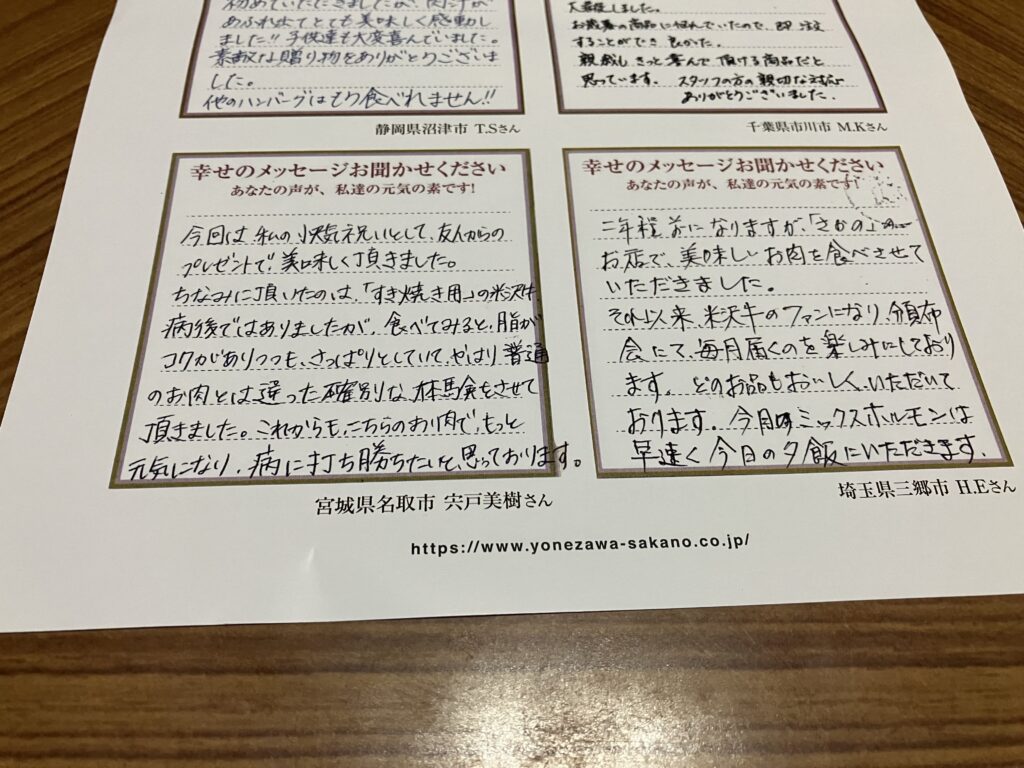 初めていただきましたが、肉汁が
あふれ出てとても美味しく感動し
ました!! 子供達も大変喜んでいました。
素敵な贈り物をありがとうございま
した。
他のハンバーグはもう食べれません!!
静岡県沼津市 T.Sさん
しました。
お歳暮の商品に悩んでいたので、即 注文
することができ 良かった。
親戚も きっと 喜んで 頂ける商品だと
思っています。 スタッフの方の 親切な対応
ありがとうございました.
千葉県市川市 M.Kさん
幸せのメッセージお聞かせください
あなたの声が、私達の元気の素です!
今回は 私の 快気祝いとして、友人からの
プレゼントで! 美味しく頂きました。
ちなみに頂いたのは、「すき焼き用」の米沢牛
病後ではありましたが、食べてみると、脂が
コクがありつつも、さっぱりとしていて、やはり 普通
のお肉とは 違った 確別な 体験をさせて
頂きました。これからも、こちらのお肉で、もっと
元気になり、病に打ち勝ちたいと、思っております。
宮城県名取市 宍戸美樹さん
幸せのメッセージお聞かせください
あなたの声が、私達の元気の素です!
二年程 前になりますが、「さかの」
お店で、美味しい お肉を食べさせて
いただきました。
それ以来、米沢牛のファンになり、頒布
会にて、毎月届くのを楽しみにしており
ます。 どのお品もおいしく、いただいて
おります。今月のミックスホルモンは
早速く 今日の夕飯にいただきます。
埼玉県三郷市 H.Eさん
https://www.yonezawa-sakano.co.jp/